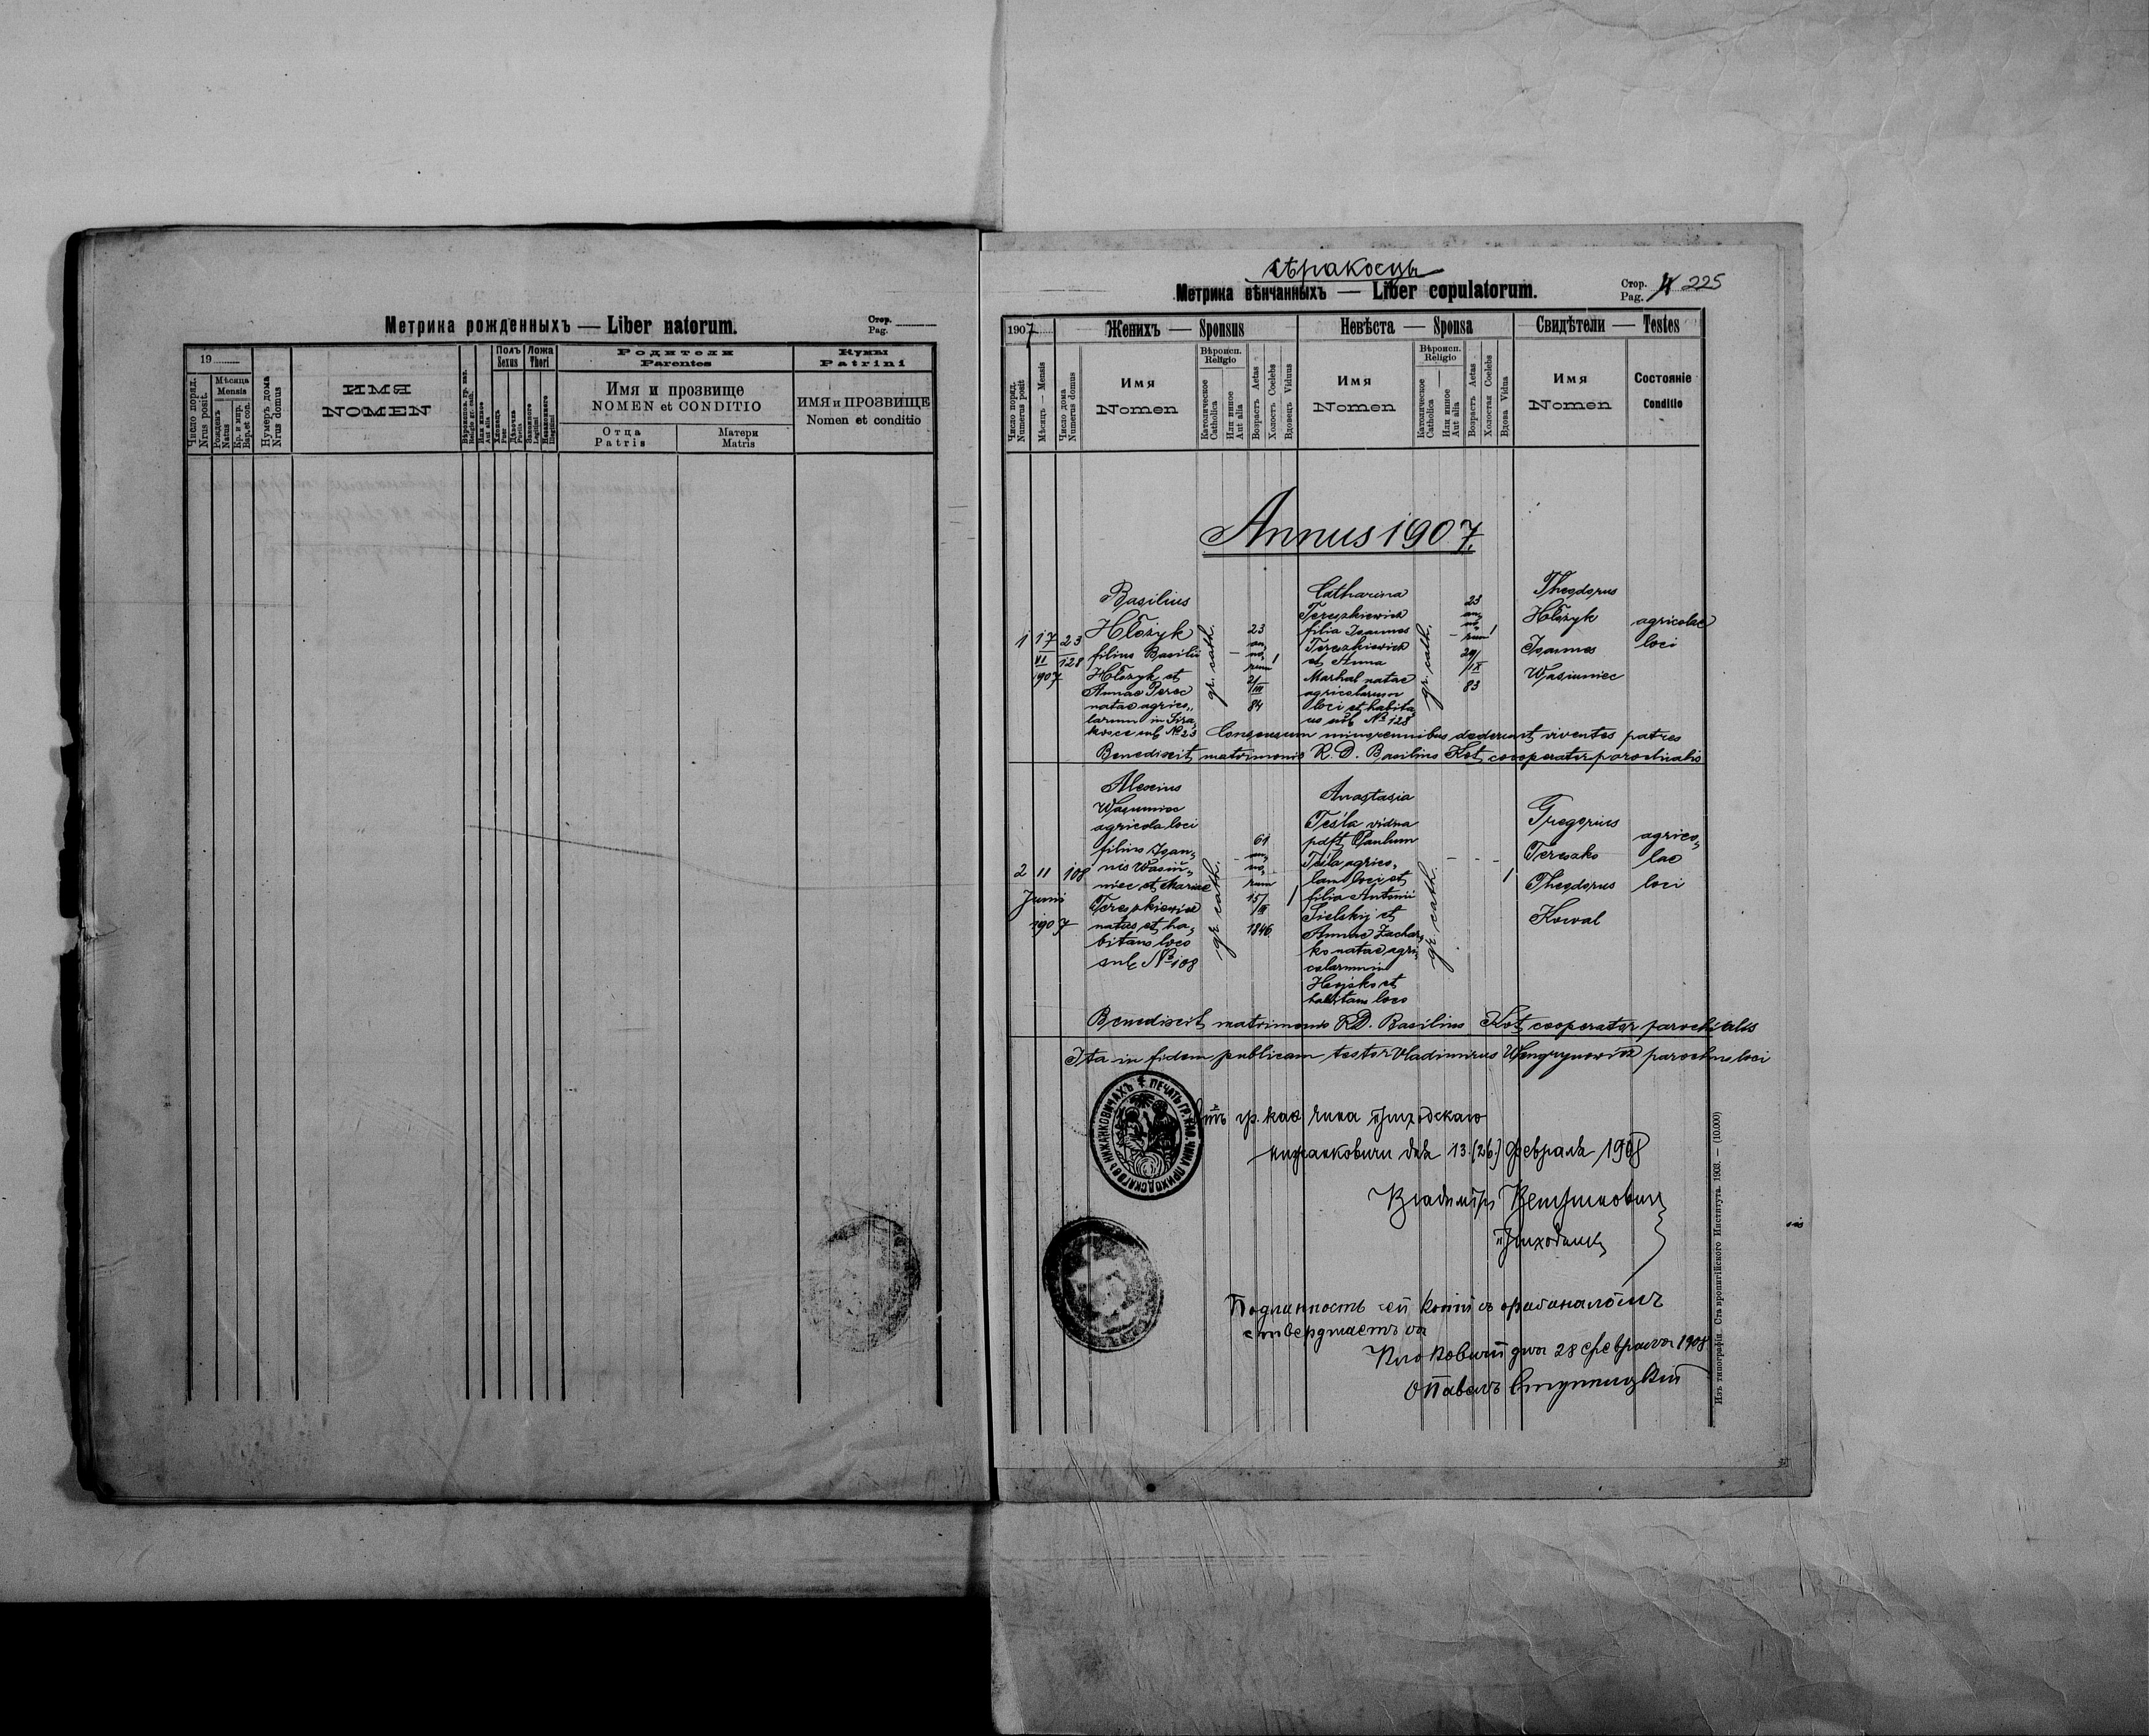 Метрика рожденныхъ — Liber natorum.
Стор.
Pag.
19
Число поряд.
Nrus posit.
Мѣсяца
Mensis
Рожденъ
Natus
Кр. и мир.
Bap. et con.
Нумеръ дома
Nrus domus
ИМЯ
NOMEN
Полъ
Sexus
Ложа
Thori
Родители
Parentes
Имя и прозвище
NOMEN et CONDITIO
Отца
Patris
Матери
Matris
Кумы
Patrini
ИМЯ и ПРОЗВИЩЕ
Nomen et conditio
Сѣракосцы
Метрика вѣнчанныхъ — Liber copulatorum.
Стор.
Pag. 4 225
1907
Женихъ — Sponsus
Невѣста — Sponsa
Свидѣтели — Testes
Число поряд.
Numerus posit
Мѣсяцъ — Mensis
Число дома
Numerus domus
Имя
Nomen
Вѣроисп.
Religio
Католическое
Catholica
Или иное
Aut alia
Возрастъ Aetas
Холостъ Coelebs
Вдовецъ Viduus
Имя
Nomen
Вѣроисп.
Religio
Католическое
Catholica
Или иное
Aut alia
Возрастъ Aetas
Холостая Coelebs
Вдова Vidua
Имя
Nomen
Состояніе
Conditio
Annus 1907.
1
17
VI
1907
23
128
Basilius
Hłożyk
filius Basilii
Hłożyk et
Annae Perec
natae agrico„
larum in Sira„
kosce sub № 23
gr. cath.
23
an„
no„
rum
21
III
84
1
Catharina
Tereszkiewicz
filia Joannes
Tereszkiewicz
et Anna
Marhal natae
agricolarum
loci et habita„
us sub № 128
gr. cath.
23
an„
no„
rum
29
IX
83
1
Theodorus
Hłożyk
Joannes
Wasiuniec
agricolae
loci
Consensum minorennibus dederunt viventes patres
Benedixit matrimonio R. D. Basilius Kot cooperator parochialis
2
11
Junii
1907
108
Alexius
Wasiuniec
agricola loci
filius Joan„
nis Wasiu„
niec et Mariae
Tereszkiewicz
natus et ha„
bitans loco
sub № 108
gr. cath.
61
an„
no„
rum
15
III
1846
1
Anastasia
Tesla vidua
pdft Paulum
Tesla agrico„
lam loci et
filia Antonii
Sielskij et
Annae Zachar„
ko natae agri„
colarum in
Hujsko et
habitans loco
gr. cath.
1
Gregorius
Tereszko
Theodorus
Kowal
agrico„
lae
loci
Benedixit matrimonio R.D. Basilius Kot cooperator parochialis
Ita in fidem publicam testor Vladimirus Wengrynowicz parochus loci
ПЕЧАТЬ ГР. КАѲ. ЧИНА ПРИХОДСКАГО ВЪ НИЖАНКОВИЧАХЪ
Отъ гр. каѳ чина приходскаго
Нижанковичи дня 13.(26.) Февраля 1908
Владиміръ Венгриновичъ
приходникъ
Подлинность сей копіи съ оригиналомъ
стверджаетъ ся
дня 28 февраля 1908
о Павелъ Ступницкій
Изъ типографіи Ставропигійского Института. 1903. — (10.000)